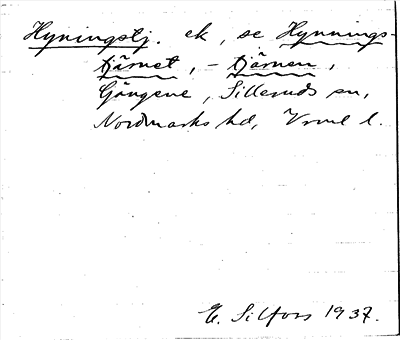 Hyningstj. ek, se Hynnings-
tjärnet, - tjärnen,
Gängene, Silleruds sn,
Nordmarks hd, Vrml l.
E. Silfors 1937.